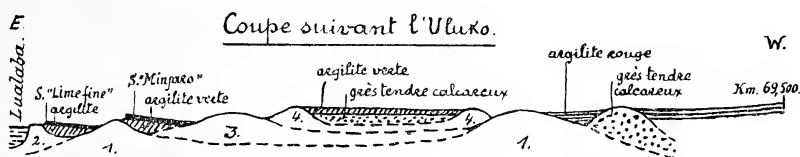 Coupe suivant l'Uluko.
E.
W.
Lualaba.
S. "Limefine"
argilite
S. "Minjaro"
argilite verte
argilite verte
grès tendre calcareux
argilite rouge
grès tendre
calcareux
Km. 69,500.
2.
1.
3.
4.
4.
1.